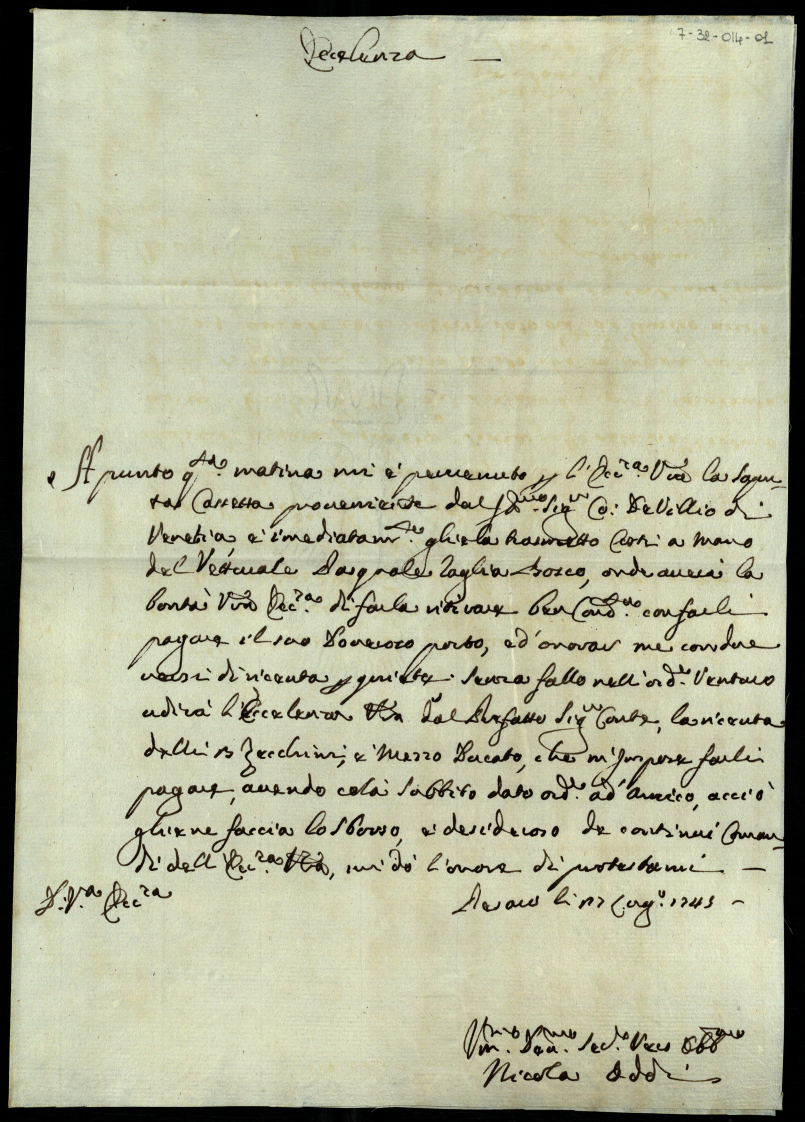 7-32-014-01
Eccelenza
Apunto q.sta matina mi è pervenuto p l'Ecc.za Vra la
Cassetta proveniente dal Sig.r Co: De Villio di
Venetia e imediatam.te ghiela trasmetto costì a mano
del Vetturale Pasquale Taglia Bosco, onde averà la
bontà Vra Ecc.za di farla ritirare ben Cond.ta con farli
pagare il suo Doveroso porto, ed onorar me
di ricevuta p quiete. Senza fallo nell'ord.o Venturo
udirà l'Eccelenza Vra dal Sig.r Conte, la riceuta
delli Zecchini, e mezzo Ducato, che m'impose farli
pagare, avendo colà subbito dato ord.e ad' amico, acciò
ghiene faccia lo sborso, e desideroso de continui Coman-
di dell Ecc.za Vra, mi dò l'onore di protestarmi
D: V.a Ecc.za
Pesaro li 1745
Um.mo Dev.mo Ser.e Vero Obb.mo
Nicola Oddi